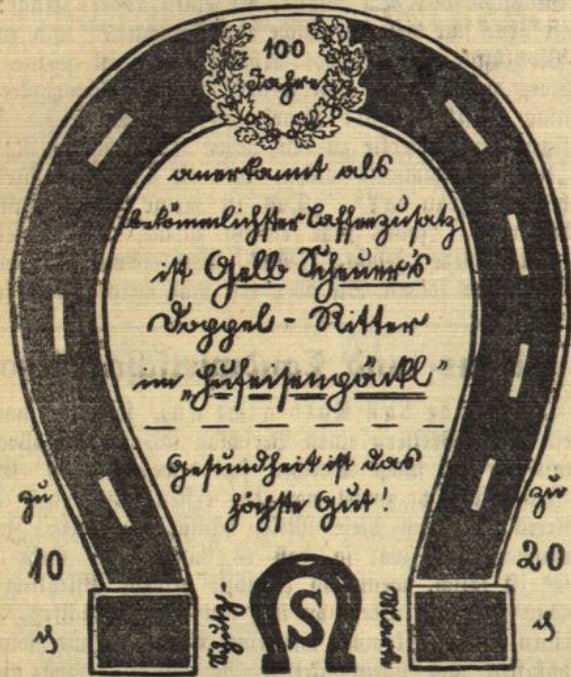 100
Jahre
anerkannt als
bekömmlichster Caffeezusatz
ist Gelb Scheuer's
Doppel - Ritter
im „Hufeisenpäckl"
Gesundheit ist das
höchste Gut!
zu
10
₰
zu
20
₰
Schutz-
S
Marke